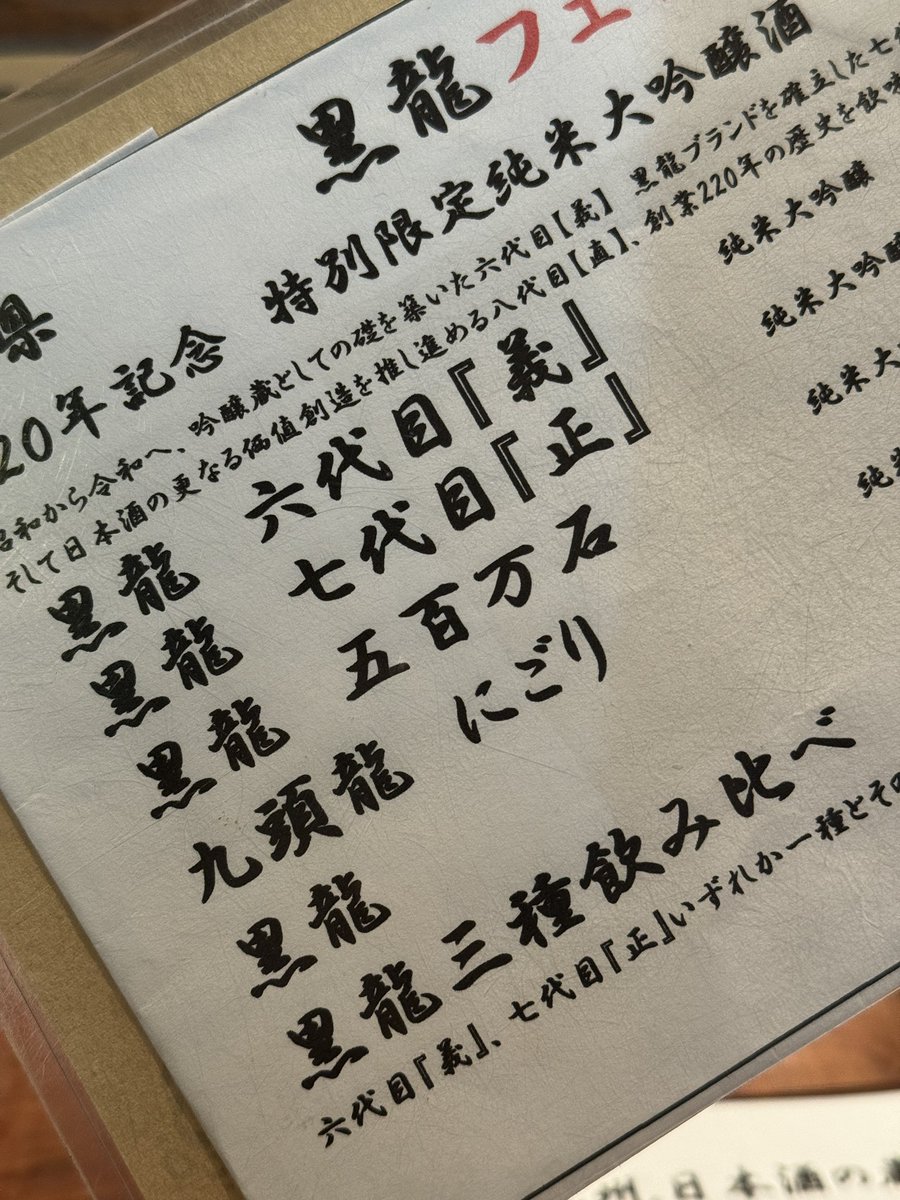 県 黒龍フェ
20年記念 特別限定純米大吟醸酒
昭和から令和へ、吟醸蔵としての礎を築いた六代目【義】 黒龍ブランドを確立した七代
そして日本酒の更なる価値創造を推し進める八代目【直】、創業220年の歴史を飲味
黒龍 六代目『義』 純米大吟醸
黒龍 七代目『正』 純米大吟醸
黒龍 五百万石 純米大
九頭龍 にごり 純米
黒龍
黒龍三種飲み比べ
六代目『義』、七代目『正』いずれか一種とその
州 日本酒の